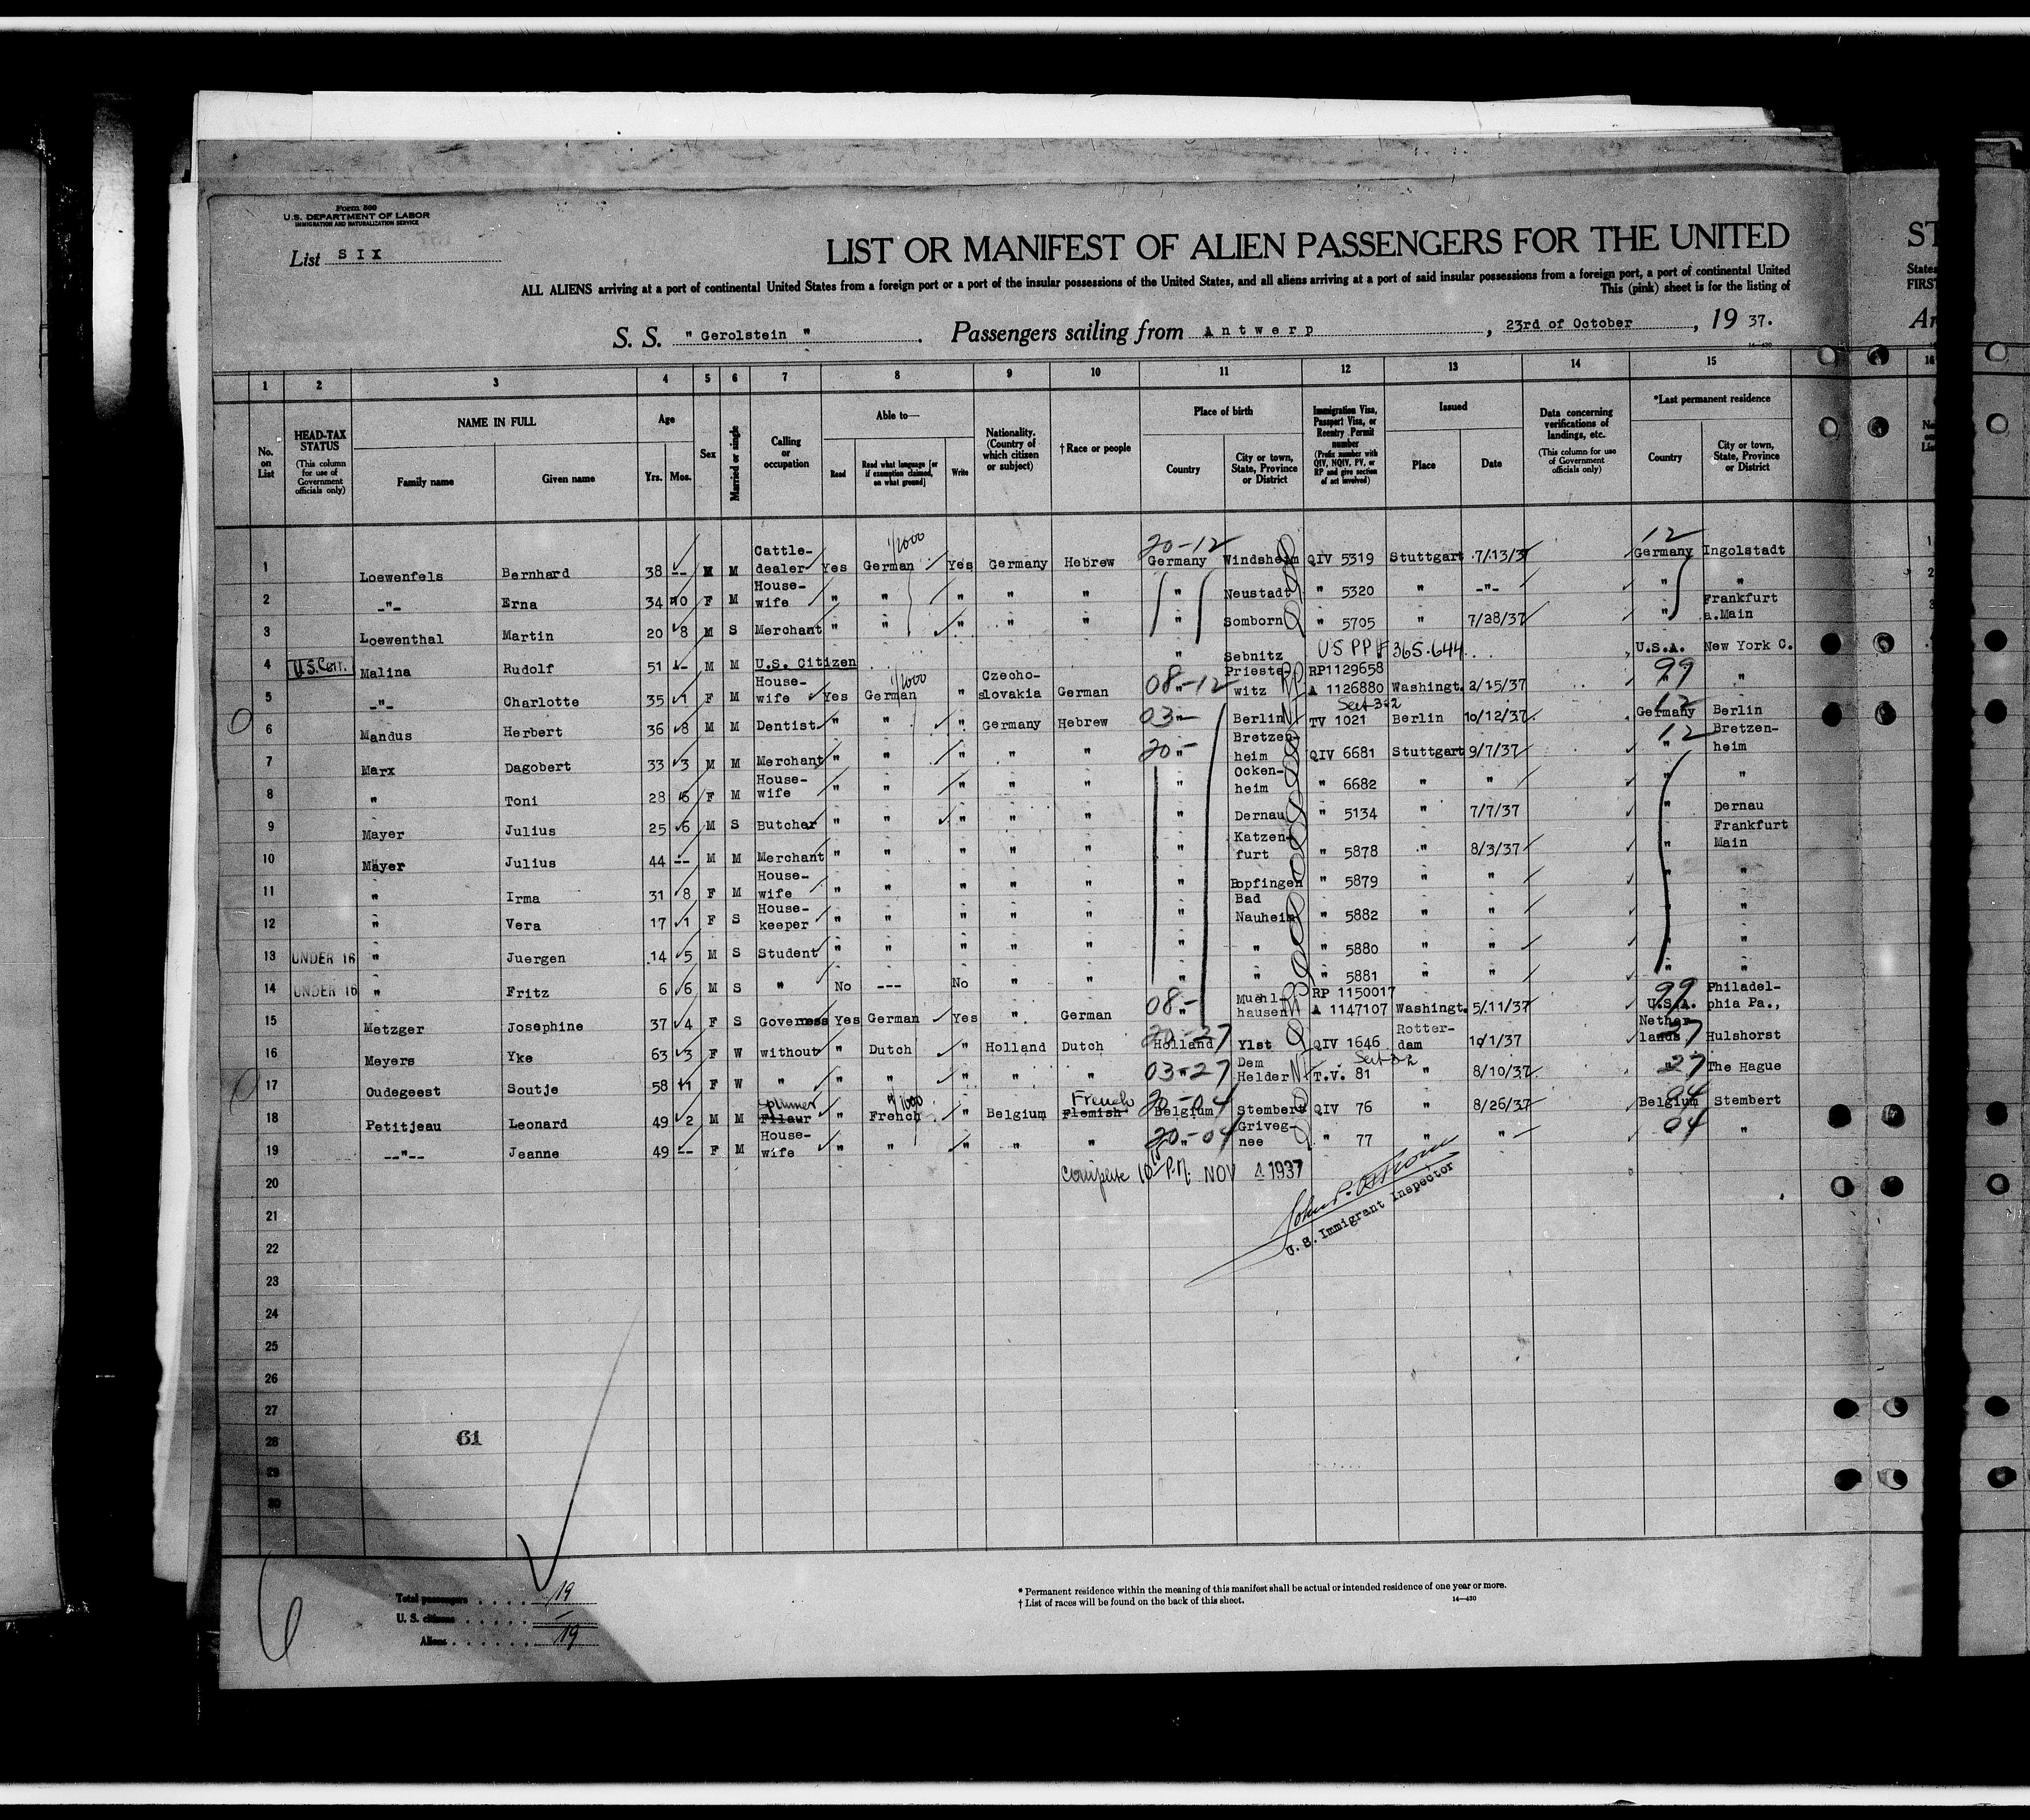 Form 500
U.S. DEPARTMENT OF LABOR
IMMIGRATION AND NATURALIZATION SERVICE
List SIX
LIST OR MANIFEST OF ALIEN PASSENGERS FOR THE UNITED
ST
ALL ALIENS arriving at a port of continental United States from a foreign port or a port of the insular possessions of the United States, and all aliens arriving at a port of said insular possessions from a foreign port, a port of continental United
States
This (pink) sheet is for the listing of
FIRST
S. S. " Gerolstein " . Passengers sailing from Antwerp , 23rd of October , 19 37.
Ar
14—430
1 2 3 4 5 6 7 8 9 10 11 12 13 14 15 16
No. on List
HEAD-TAX STATUS
(This column for use of Government officials only)
NAME IN FULL
Family name Given name
Age
Yrs. Mos.
Sex
Married or single
Calling or occupation
Able to—
Read
Read what language [or if exemption claimed, on what ground]
Write
Nationality. (Country of which citizen or subject)
† Race or people
Place of birth
Country
City or town, State, Province or District
Immigration Visa, Passport Visa, or Reentry Permit number
(Prefix number with QIV, NQIV, PV, or RP and give section of act involved)
Issued
Place Date
Data concerning verifications of landings, etc.
(This column for use of Government officials only)
*Last permanent residence
Country
City or town, State, Province or District
1 Loewenfels Bernhard 38 -- M M Cattle-dealer Yes German 1/2000 Yes Germany Hebrew 20-12 Germany Windsheim QIV 5319 Stuttgart 7/13/37 12 Germany Ingolstadt
2 -"- Erna 34 10 F M House-wife " " " " " " Neustadt " 5320 " -"- " "
3 Loewenthal Martin 20 8 M S Merchant " " " " " " Somborn " 5705 " 7/28/37 " Frankfurt a.Main
4 U.S. Malina Rudolf 51 -- M M U.S. Citizen " Sebnitz US PP# 365.644 U.S.A. New York C.
5 -"- Charlotte 35 1 F M House-wife Yes German 1/2000 " Czecho-slovakia German 08-12 " Priestewitz RP RP1129658 A 1126880 Washingt. 2/15/37 99 " "
6 Mandus Herbert 36 8 M M Dentist " " " Germany Hebrew 03- " Berlin Sect 3-2 TV 1021 Berlin 10/12/37 12 Germany Berlin
7 Marx Dagobert 33 3 M M Merchant " " " " " 20- " Bretzen-heim QIV 6681 Stuttgart 9/7/37 12 " Bretzen-heim
8 " Toni 28 6 F M House-wife " " " " " " Ocken-heim " 6682 " " " "
9 Mayer Julius 25 6 M S Butcher " " " " " " Dernau " 5134 " 7/7/37 " Dernau
10 Mayer Julius 44 -- M M Merchant " " " " " " Katzen-furt " 5878 " 8/3/37 " Frankfurt Main
11 " Irma 31 8 F M House-wife " " " " " " Bopfingen " 5879 " " " "
12 " Vera 17 1 F S House-keeper " " " " " " Bad Nauheim " 5882 " " " "
13 UNDER 16 " Juergen 14 5 M S Student " " " " " " " " 5880 " " " "
14 UNDER 16 " Fritz 6 6 M S " No --- No " " " " " 5881 " " " "
15 Metzger Josephine 37 4 F S Governess Yes German Yes " German 08- " Muehl-hausen RP 1150017 A 1147107 Washingt. 5/11/37 99 U.S.A. Philadel-phia Pa.,
16 Meyers Yke 63 3 F W without " Dutch " Holland Dutch 20-27 Holland Ylst QIV 1646 Rotter-dam 10/1/37 27 Nether-lands Hulshorst
17 Oudegeest Soutje 58 11 F W " " " " " " 03-27 " Dem Helder Sect 3-2 T.V. 81 " 8/10/37 27 " The Hague
18 Petitjeau Leonard 49 2 M M Spinner " French 1/1000 " Belgium French Flemish 20-04 Belgium Stembert QIV 76 " 8/26/37 04 Belgium Stembert
19 --"-- Jeanne 49 -- F M House-wife " " " " " 20-04 " Griveg-nee " 77 " " 04 "
20 Complete 10 P.M. NOV 4 1937
21
22
U. S. Immigrant Inspector
23
24
25
26
27
28
61
29
30
6
Total passengers . . . . 19
U. S. citizens . . . . . —
Aliens . . . . . . 19
* Permanent residence within the meaning of this manifest shall be actual or intended residence of one year or more.
† List of races will be found on the back of this sheet.
14—430